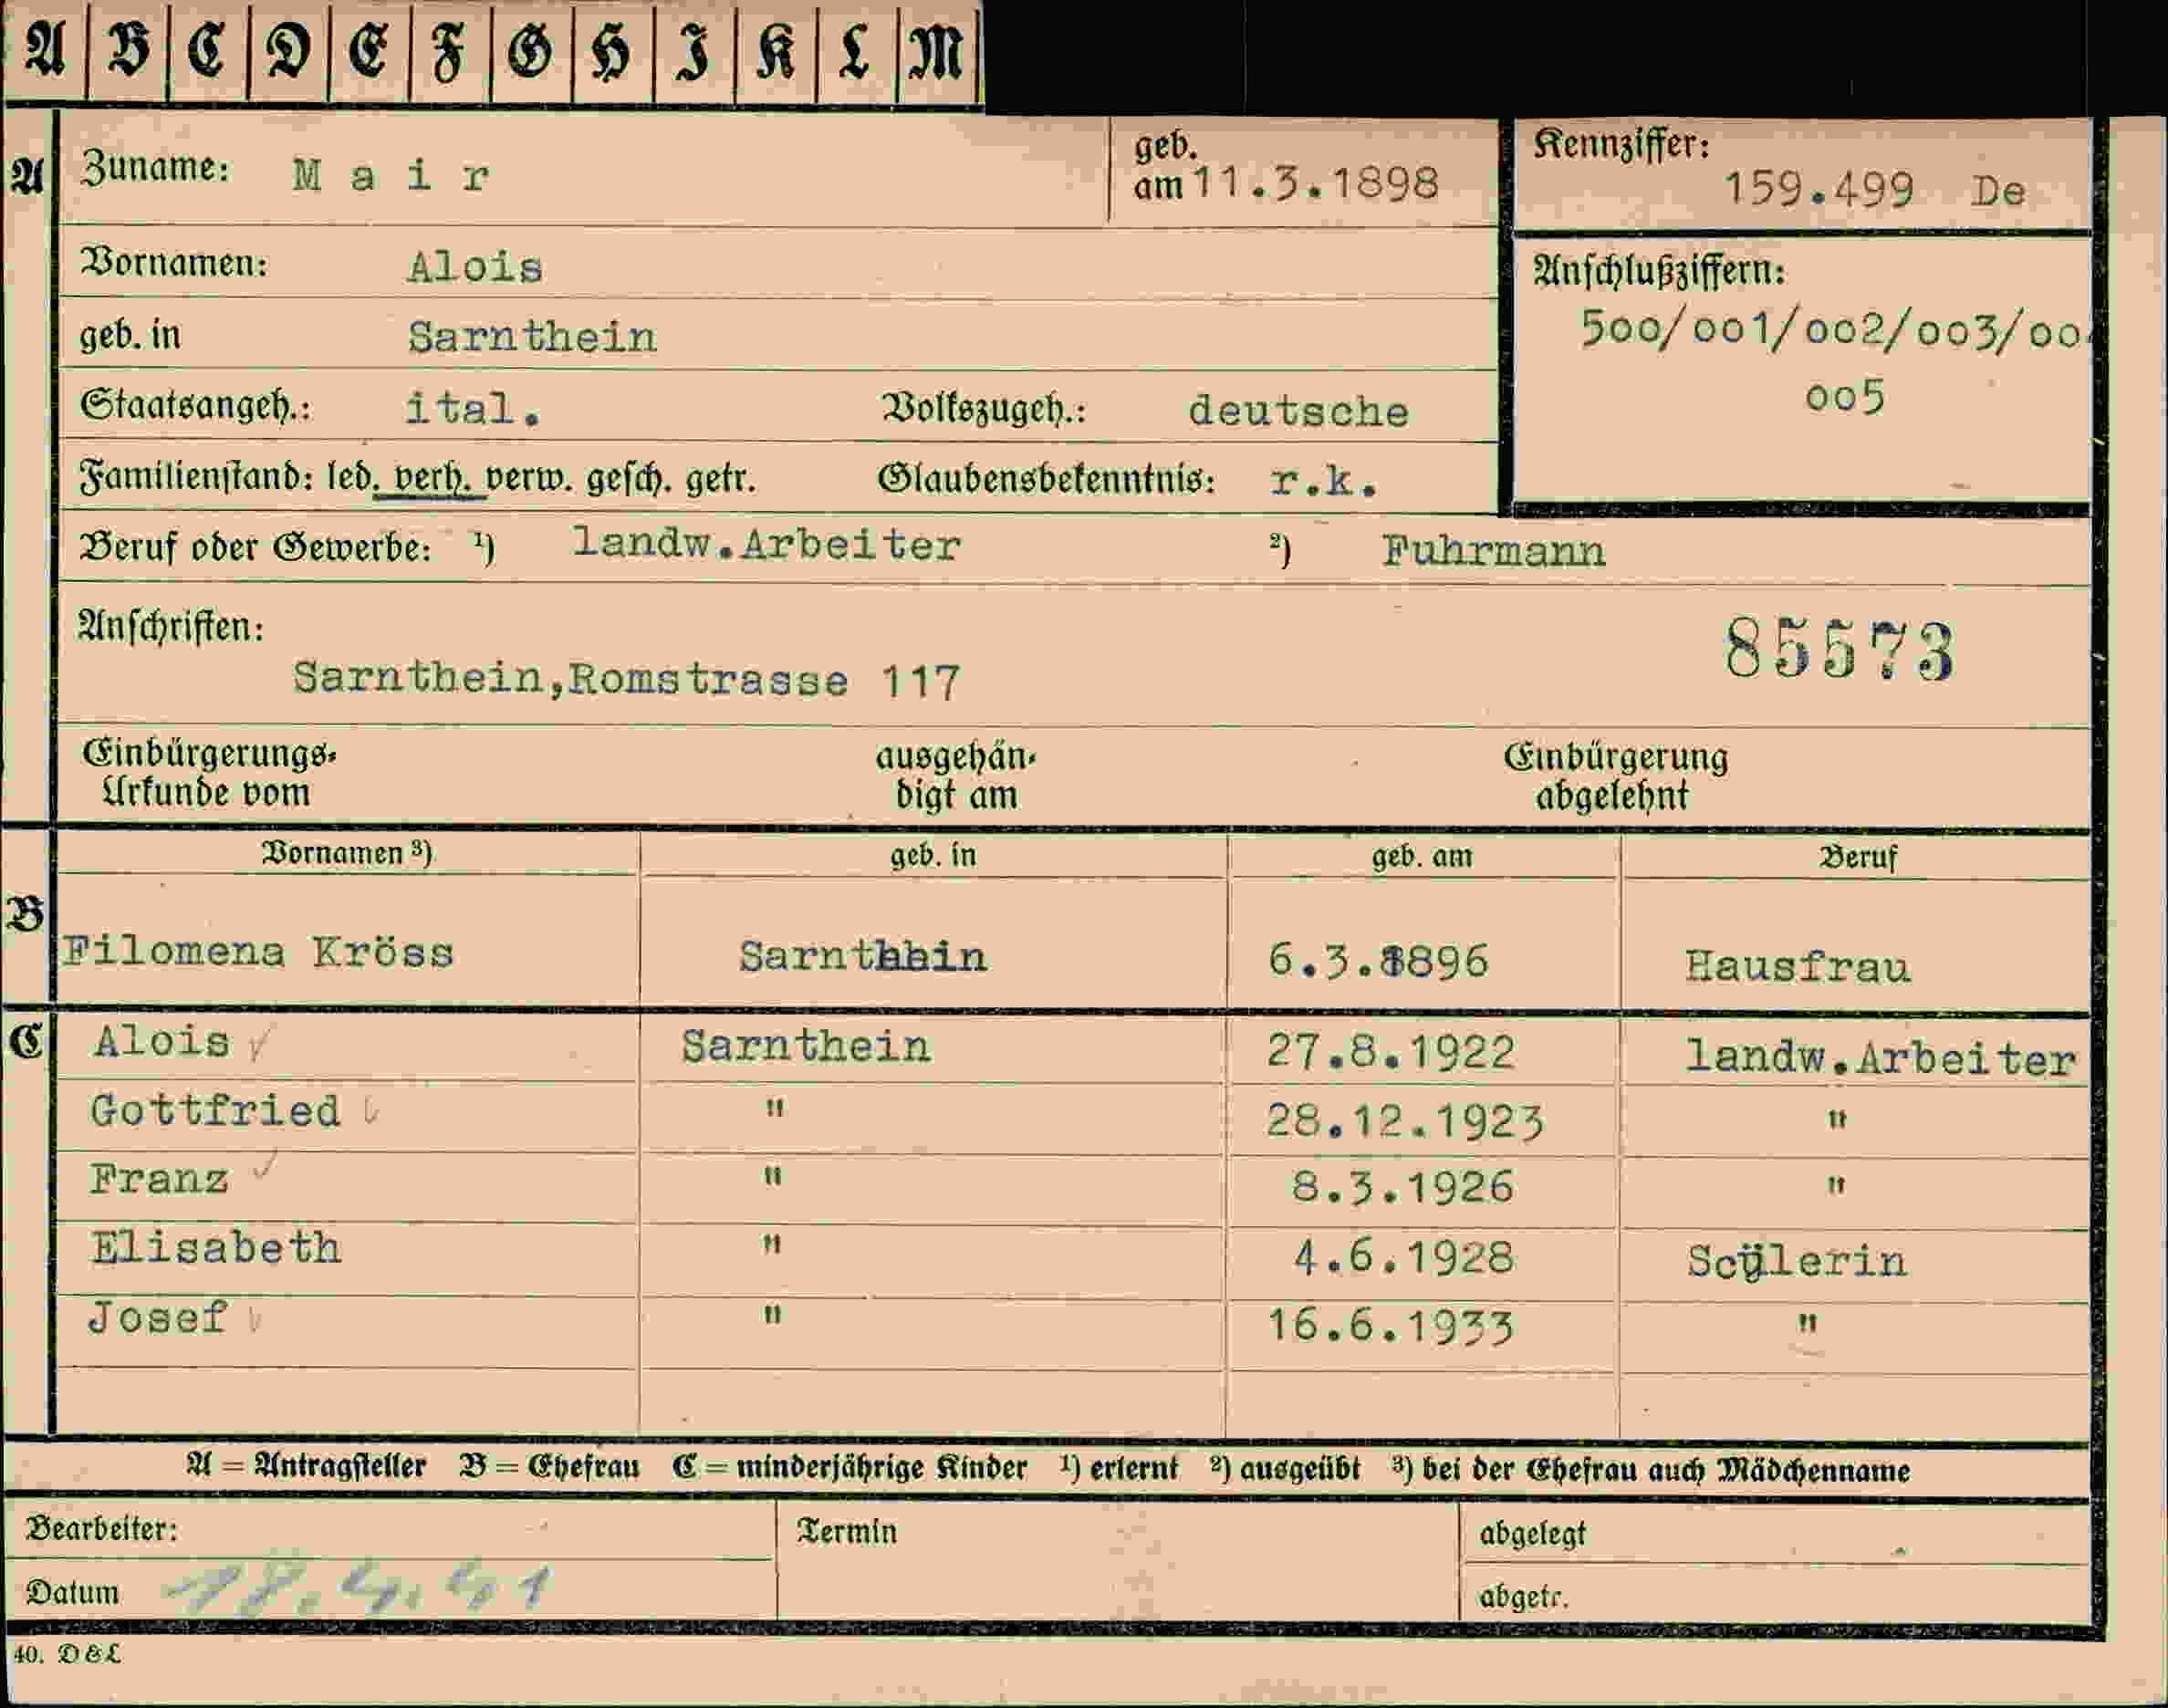 A B C D E F G H I K L M
A Zuname: Mair geb. am 11.3.1898 Kennziffer: 159.499 De
Vornamen: Alois
Anschlußziffern:
geb. in Sarnthein 500/001/002/003/00
Staatsangeh.: ital. Volkszugeh.: deutsche 005
Familienstand: led. verh. verw. gesch. getr. Glaubensbekenntnis: r.k.
Beruf oder Gewerbe: ¹) landw.Arbeiter ²) Fuhrmann
Anschriften: 85573
Sarnthein,Romstrasse 117
Einbürgerungs- ausgehän- Einbürgerung
Urkunde vom digt am abgelehnt
Vornamen ³) geb. in geb. am Beruf
B Filomena Kröss 6.3.1896 Hausfrau
C Alois Sarnthein 27.8.1922 landw.Arbeiter
Gottfried " 28.12.1923 "
Franz " 8.3.1926 "
Elisabeth " 4.6.1928 Scülerin
Josef " 16.6.1933 "
A = Antragsteller B = Ehefrau C = minderjährige Kinder ¹) erlernt ²) ausgeübt ³) bei der Ehefrau auch Mädchenname
Bearbeiter: Termin abgelegt
Datum 18.4.41 abgetr.
40. D & L